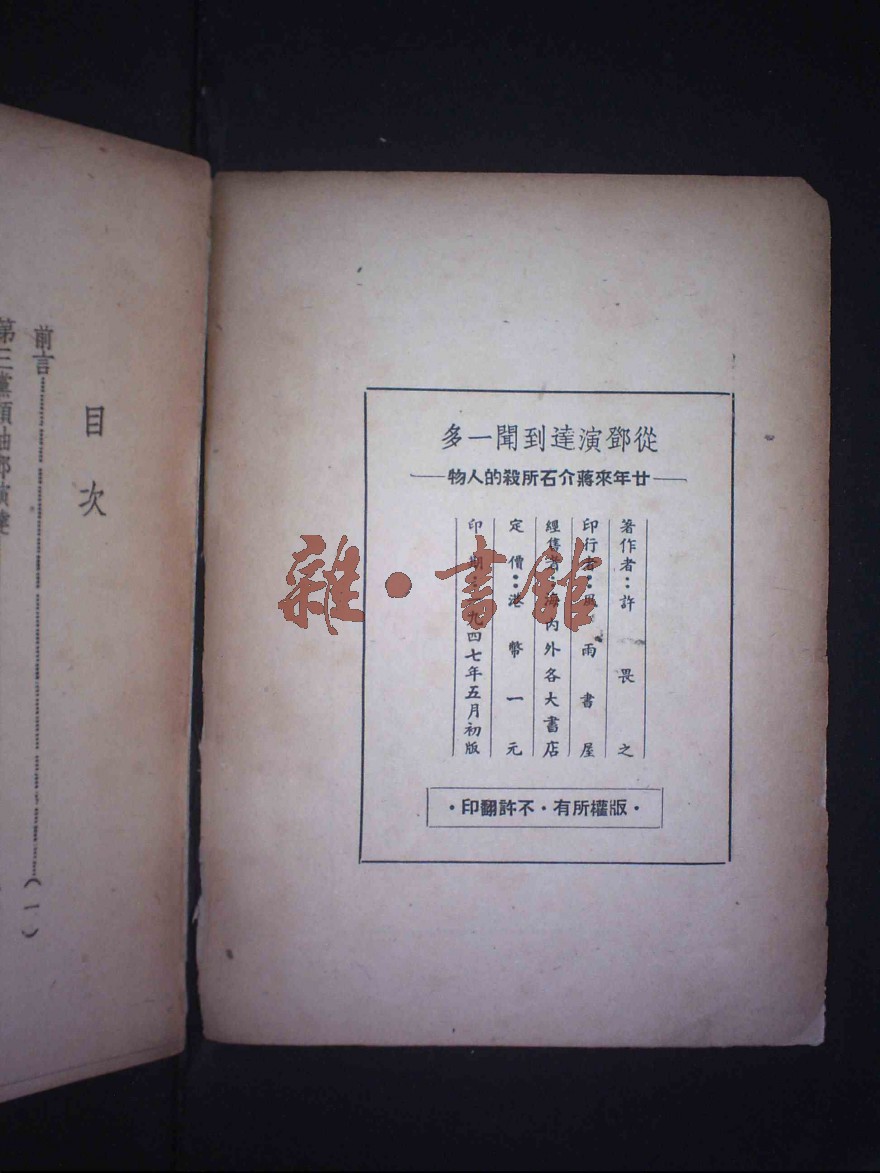 從鄧演達到聞一多
——廿年來蔣介石所殺的人物——
著作者：許畏之
印行者：風雨書屋
經售者：海內外各大書店
定價：港幣一元
印期：一九四七年五月初版
·版權所有·不許翻印·
目次
前言……………………（一）
第三黨領袖鄧演達
雜·書館